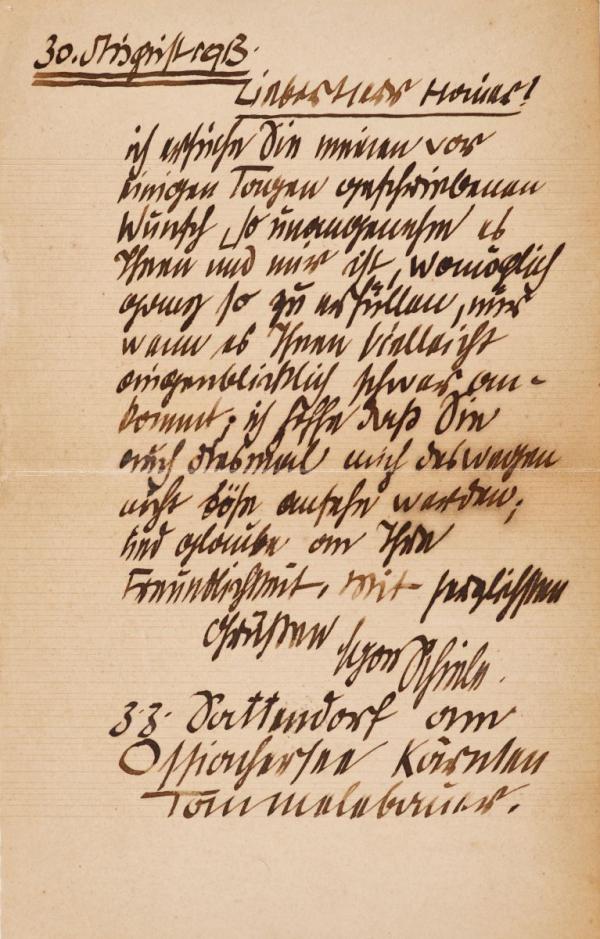 30. August 1913.
Lieber Herr Hauer!
ich ersuche Sie meinen vor
einigen Tagen geschriebenen
Wunsch, so unangenehm es
Ihnen und mir ist, womöglich
ganz so zu erfüllen, nur
wann es Ihnen vielleicht
augenblicklich schwer an-
kommt; ich hoffe daß Sie
auch diesmal mich deswegen
nicht böse ansehn werden;
und glaube an Ihre
Freundlichkeit. Mit herzlichsten
Grüßen
Egon Schiele.
z.Z. Sattendorf am
Ossiachersee Kärnten